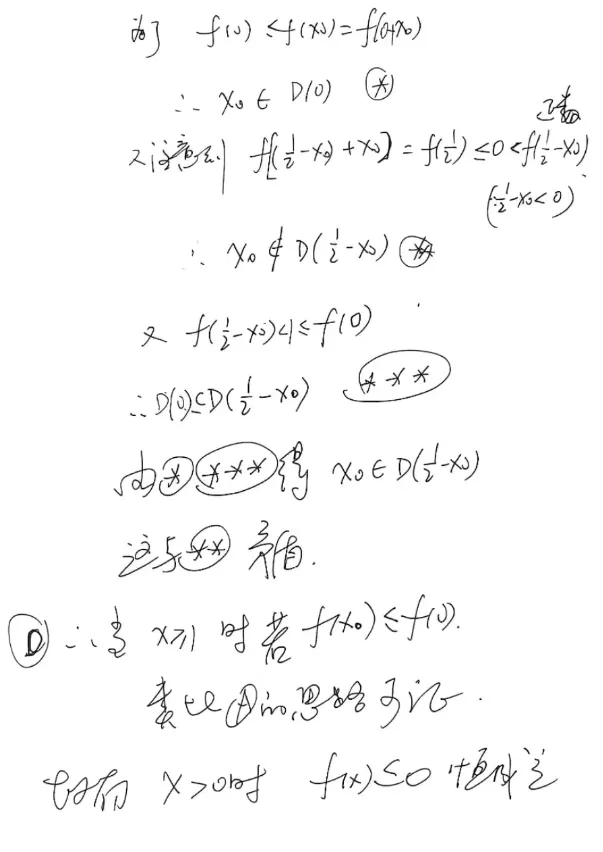 为了 f(0)≤f(x₀)=f(0+x₀)
∴ x₀∈D(0) ⊛
正数
又注意到 f[(1/2-x₀)+x₀]=f(1/2)≤0<f(1/2-x₀)
(∵1/2-x₀<0)
∴ x₀∉D(1/2-x₀) (**)
又 f(1/2-x₀)<1≤f(0)
∴D(0)⊆D(1/2-x₀) (***)
由(*)(***)得 x₀∈D(1/2-x₀)
这与(**)矛盾.
Ⓓ ∴当 x≥1 时若 f(x₀)≤f(0).
类比①的思路可证.
故有 x>0时 f(x)≤0 恒成立